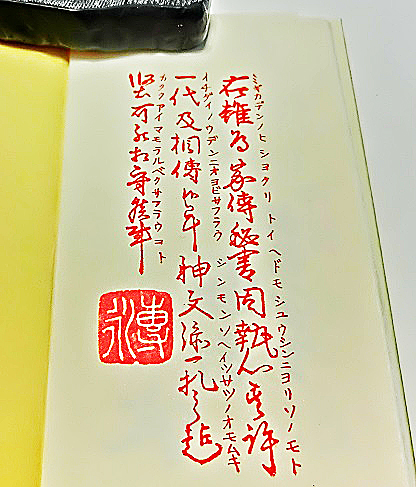 右雖為家傳秘書因執心其許
ミギカデンノヒショタリトイヘドモシユウシンニヨリソノモト
一代及相傳候畢神文添一札之趣
イチダイソウデンニオヨビサフラウ シンモンソヘイツサツノオモムキ
堅可被相守候事
カタクアイマモラルベクサフラウコト
專永